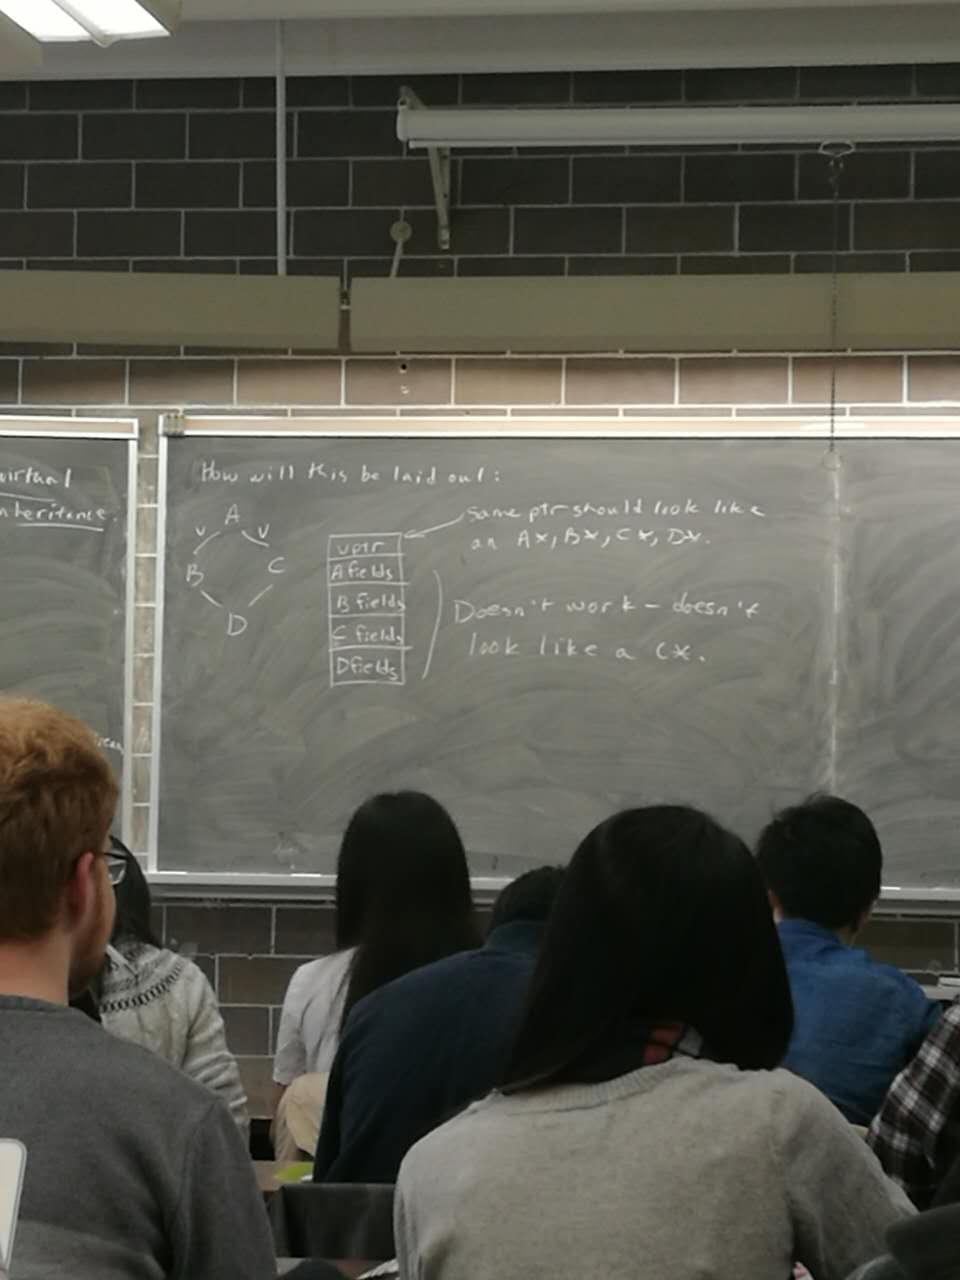 virtual
inheritance.
How will this be laid out:
A
V V
B C
D
vptr
A fields
B fields
C fields
D fields
same ptr should look like
an A*, B*, C*, D*.
Doesn't work – doesn't
look like a C*.